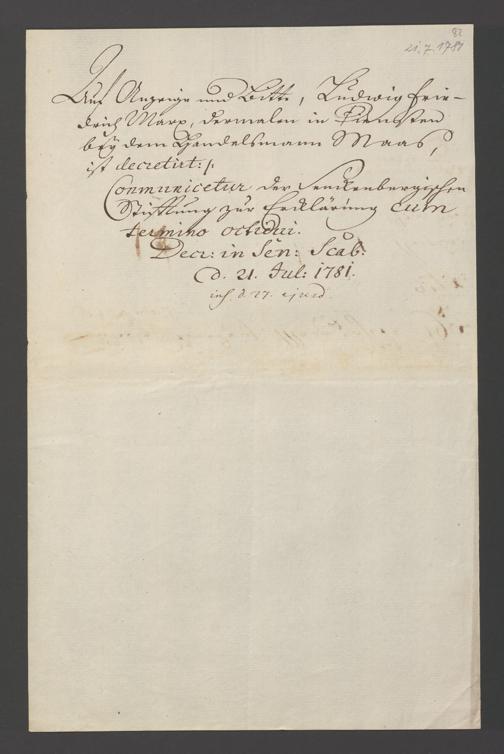 82
21.7.1781
Auf Anzeige und Bitte, Ludwig Frie-
drich Marx, dermalen in Diensten
bey dem Handelsmann Maas,
ist decretirt:/.
Communicetur der Senckenbergischen
Stifftung zur Erklärung cum
termino octidui.
Decr: in Sen: Scab:
d. 21. Jul: 1781.
ins. d. 27. ejusd.